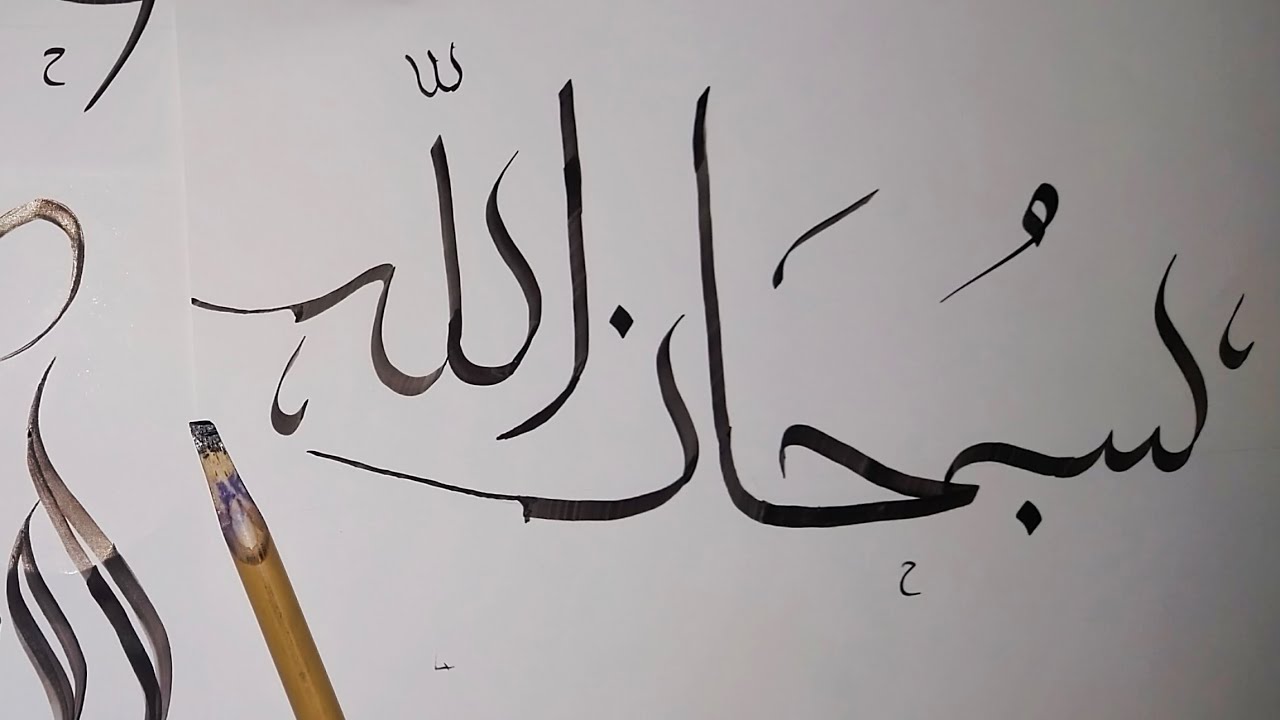 سُبحَان اللّه